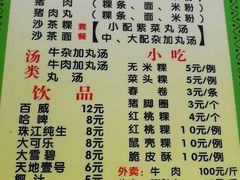 猪肉丸（粿条、面、米粉）
沙茶粿 套 （小配紫菜丸汤
沙茶面 餐 中、大配杂加丸汤）
汤类
牛杂加丸汤
猪肉加丸汤
丸汤
小吃
无米粿 5元/例
菜头粿 5元/例
春卷 3元/条
猪脚圈 3元/个
红桃粿 3元/个
红桃粿 10元/例
黑鱿 10元/例
脆皮酥 10元/例
外卖：牛肉 100元/斤
饮品
百威 12元
哈啤 8元
珠江纯生 8元
大可乐 8元
大雪碧 8元
天地壹号 6元
椰汁